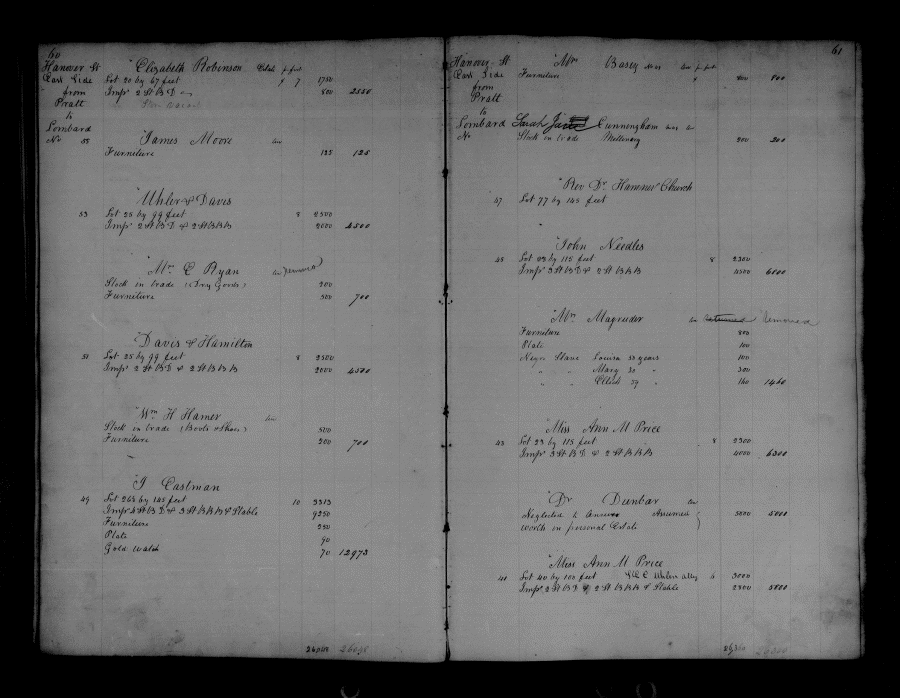 60
Hanover St
East Side
from
Pratt
to
Lombard
No
Elizabeth Robinson
Lot 20 by 67 feet 7 1750
Impr 2 St B D 800 2550
55 James Moore
Furniture 125 125
Uhler & Davis
53 Lot 25 by 99 feet 8 2500
Impr 2 St B D & 2 St B B B 2000 4500
Mrs C Ryan removed
Stock in trade (Dry Goods) 200
Furniture 500 700
Davis & Hamilton
51 Lot 25 by 99 feet 8 2500
Impr 2 St B D & 2 St B B B 2000 4500
Wm H Hamer
Stock in trade (Boots & Shoes) 500
Furniture 200 700
J Eastman
49 Lot by 145 feet 10 3313
Impr 4 St B D & 3 St B B B & Stable 9250
Furniture 250
Plate 90
Gold Watch 70 12973
61
Hanover St
East Side
from
Pratt
to
Lombard
No
Mrs Basey
Furniture 800 800
Sarah Cunningham
Stock in trade Millinery 200 200
Rev Dr Hamner Church
47 Lot 77 by 145 feet
John Needles
45 Lot 23 by 115 feet 8 2300
Impr 3 St B D & 2 St B B B 6800
Mrs Magruder returned Removed
Furniture 800
Plate 100
Negro Slave Louisa 33 years 100
" " Mary 30 " 300
" " 39 " 160 1460
Miss Ann M Price
43 Lot 23 by 115 feet 8 2300
Impr 3 St B D & 2 St B B B 4000 6300
Dr Dunbar
Neglected to Answer Assumed 5000 5000
worth in personal Estate
Miss Ann M Price
41 Lot 40 by 100 feet Uhlers alley 6 3000
Impr 2 St B D & 2 St B B B & Stable 2800 5800